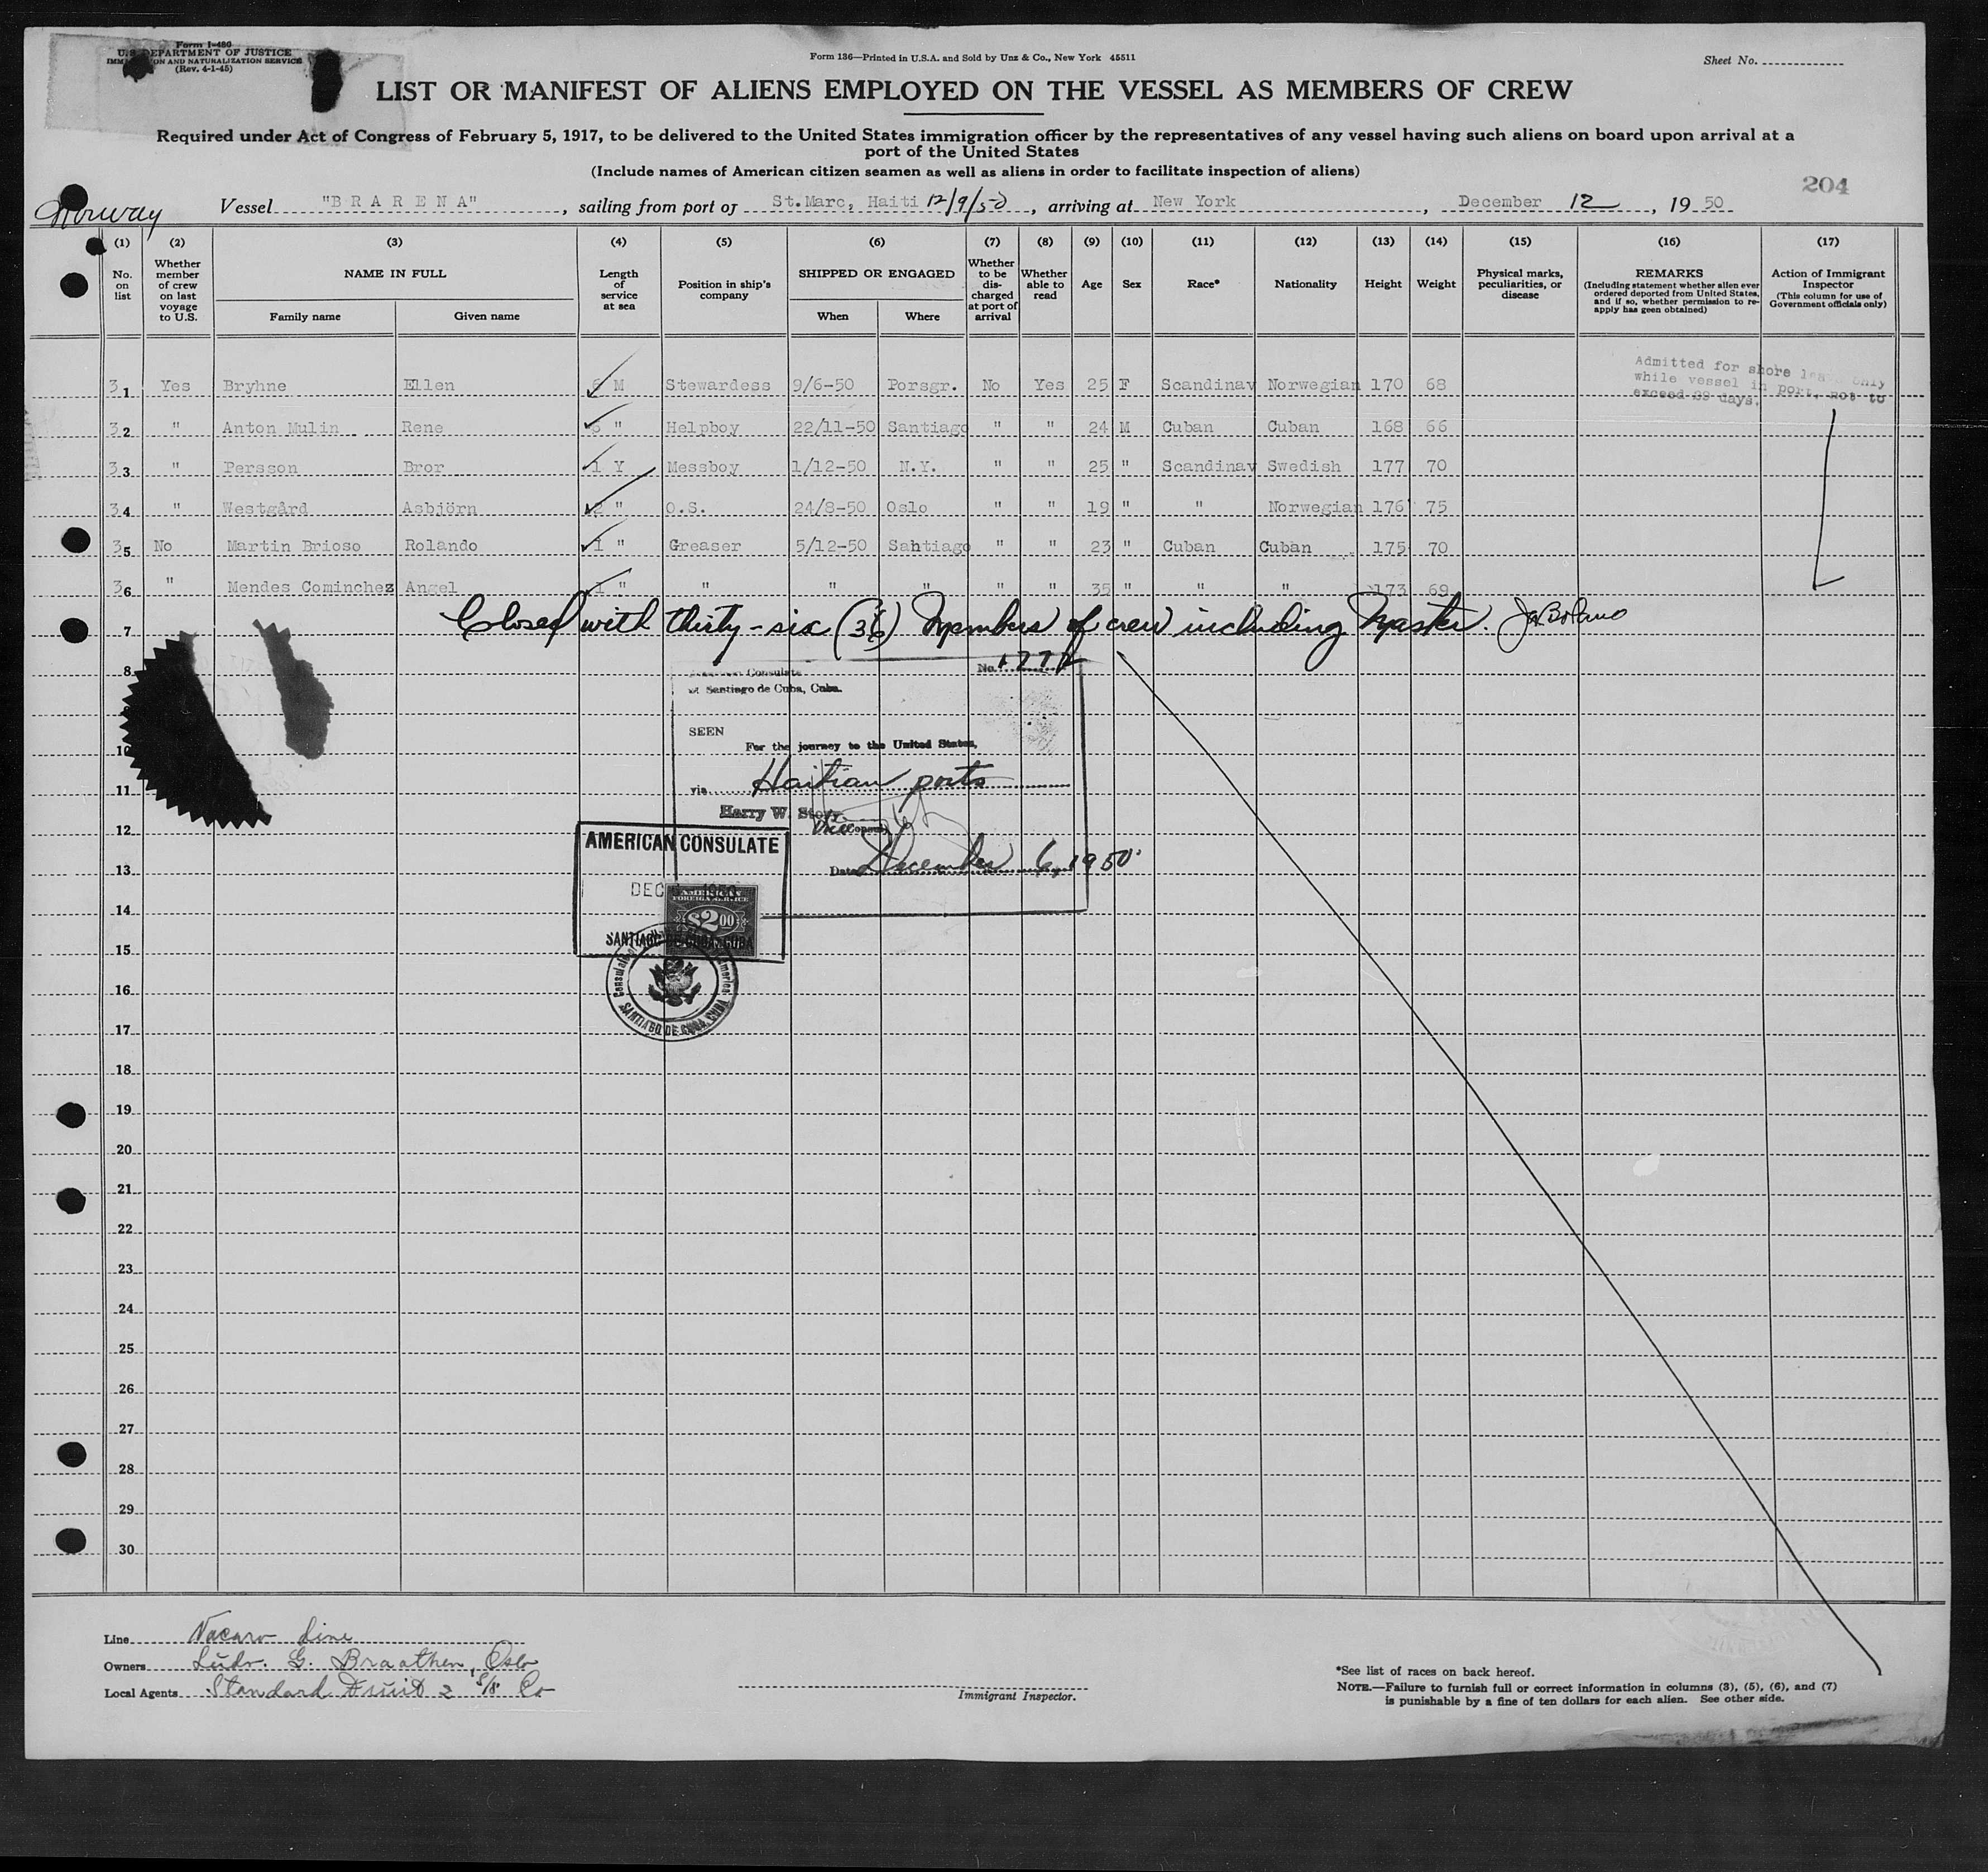 Form I-480
U.S. DEPARTMENT OF JUSTICE
IMMIGRATION AND NATURALIZATION SERVICE
(Rev. 4-1-45)
Form 136—Printed in U.S.A. and Sold by Unz & Co., New York 45511
Sheet No.
LIST OR MANIFEST OF ALIENS EMPLOYED ON THE VESSEL AS MEMBERS OF CREW
Required under Act of Congress of February 5, 1917, to be delivered to the United States immigration officer by the representatives of any vessel having such aliens on board upon arrival at a
port of the United States
(Include names of American citizen seamen as well as aliens in order to facilitate inspection of aliens)
204
Norway Vessel "BRARENA", sailing from port of St.Marc, Haiti 12/9/50, arriving at New York, December 12, 1950
(1) (2) (3) (4) (5) (6) (7) (8) (9) (10) (11) (12) (13) (14) (15) (16) (17)
No. on list
Whether member of crew on last voyage to U.S.
NAME IN FULL
Family name Given name
Length of service at sea
Position in ship's company
SHIPPED OR ENGAGED
When Where
Whether to be discharged at port of arrival
Whether able to read
Age
Sex
Race*
Nationality
Height
Weight
Physical marks, peculiarities, or disease
REMARKS
(Including statement whether alien ever ordered deported from United States, and if so, whether permission to reapply has geen obtained)
Action of Immigrant Inspector
(This column for use of Government officials only)
Admitted for shore leave only
while vessel in port, not to
exceed 29 days.
31 Yes Bryhne Ellen 6 M Stewardess 9/6-50 Porsgr. No Yes 25 F Scandinav Norwegian 170 68
32 " Anton Mulin Rene " Helpboy 22/11-50 Santiago " " 24 M Cuban Cuban 168 66
33 " Persson Bror 1 Y Messboy 1/12-50 N.Y. " " 25 " Scandinav Swedish 177 70
34 " Westgård Asbjörn 2 " O.S. 24/8-50 Oslo " " 19 " " Norwegian 176 75
35 No Martin Brioso Rolando 1 " Greaser 5/12-50 Sahtiago " " 23 " Cuban Cuban 175 70
36 " Mendes Cominchez Angel 1 " " " " " " 35 " " " 173 69
Closed with thirty-six (36) Members of crew including Master.
7
8
9
10
11
12
13
14
15
16
17
18
19
20
21
22
23
24
25
26
27
28
29
30
Consulate No.
at Santiago de Cuba, Cuba.
SEEN
For the journey to the United States,
via Haitian ports
Harry W. Story
Vice Consul
Date December 6, 1950
AMERICAN CONSULATE
DEC 1950
FOREIGN SERVICE
$2.00
SANTIAGO DE CUBA, CUBA
SANTIAGO DE CUBA, CUBA
Line Vacaro Line
Owners Ludv. G. Braathen, Oslo
Local Agents Standard Fruit & S/S Co
Immigrant Inspector.
*See list of races on back hereof.
NOTE.—Failure to furnish full or correct information in columns (3), (5), (6), and (7)
is punishable by a fine of ten dollars for each alien. See other side.